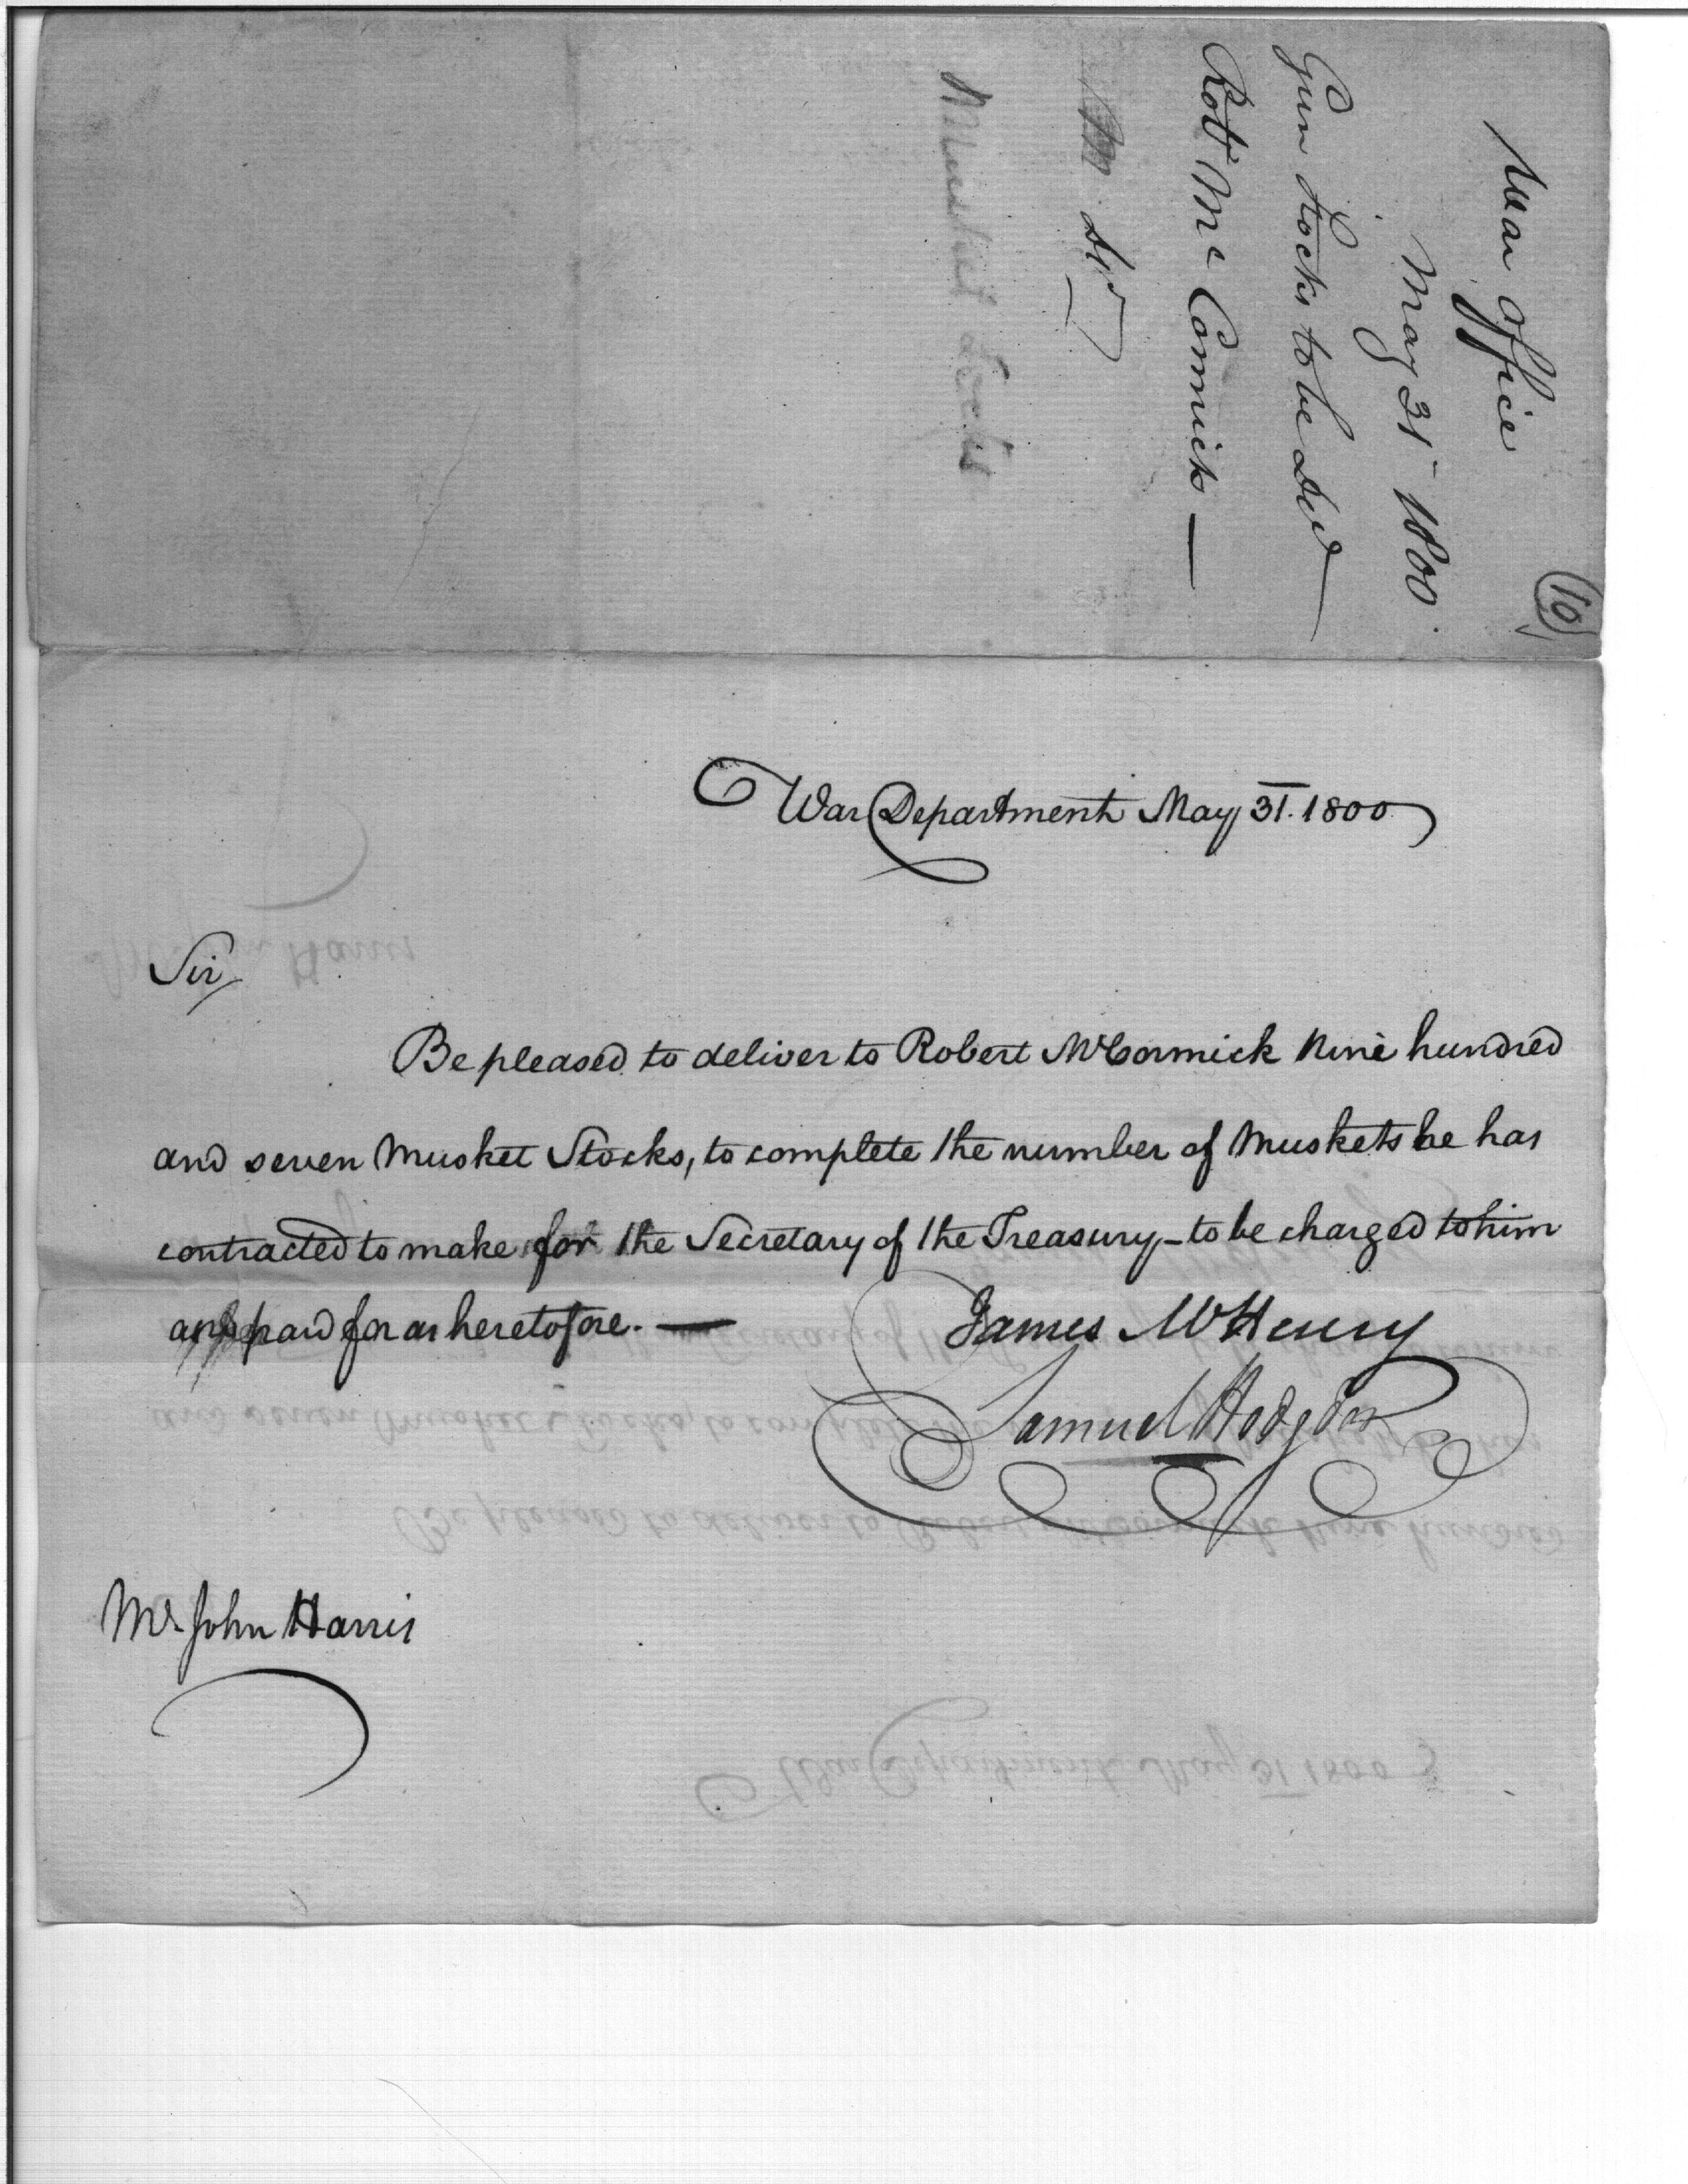 War Office
May 31 1800
Gun Stocks to be Ded
Robt Mc Comick —
Musket Stocks
10
War Department May 31. 1800
Sir,
Be pleased to deliver to Robert McCormick Nine hundred
and seven Musket Stocks, to complete the number of Muskets he has
contracted to make for the Secretary of the Treasury – to be charged to him
and paid for as heretofore. —
James McHenry
Samuel Hodgdon
Mr. John Harris